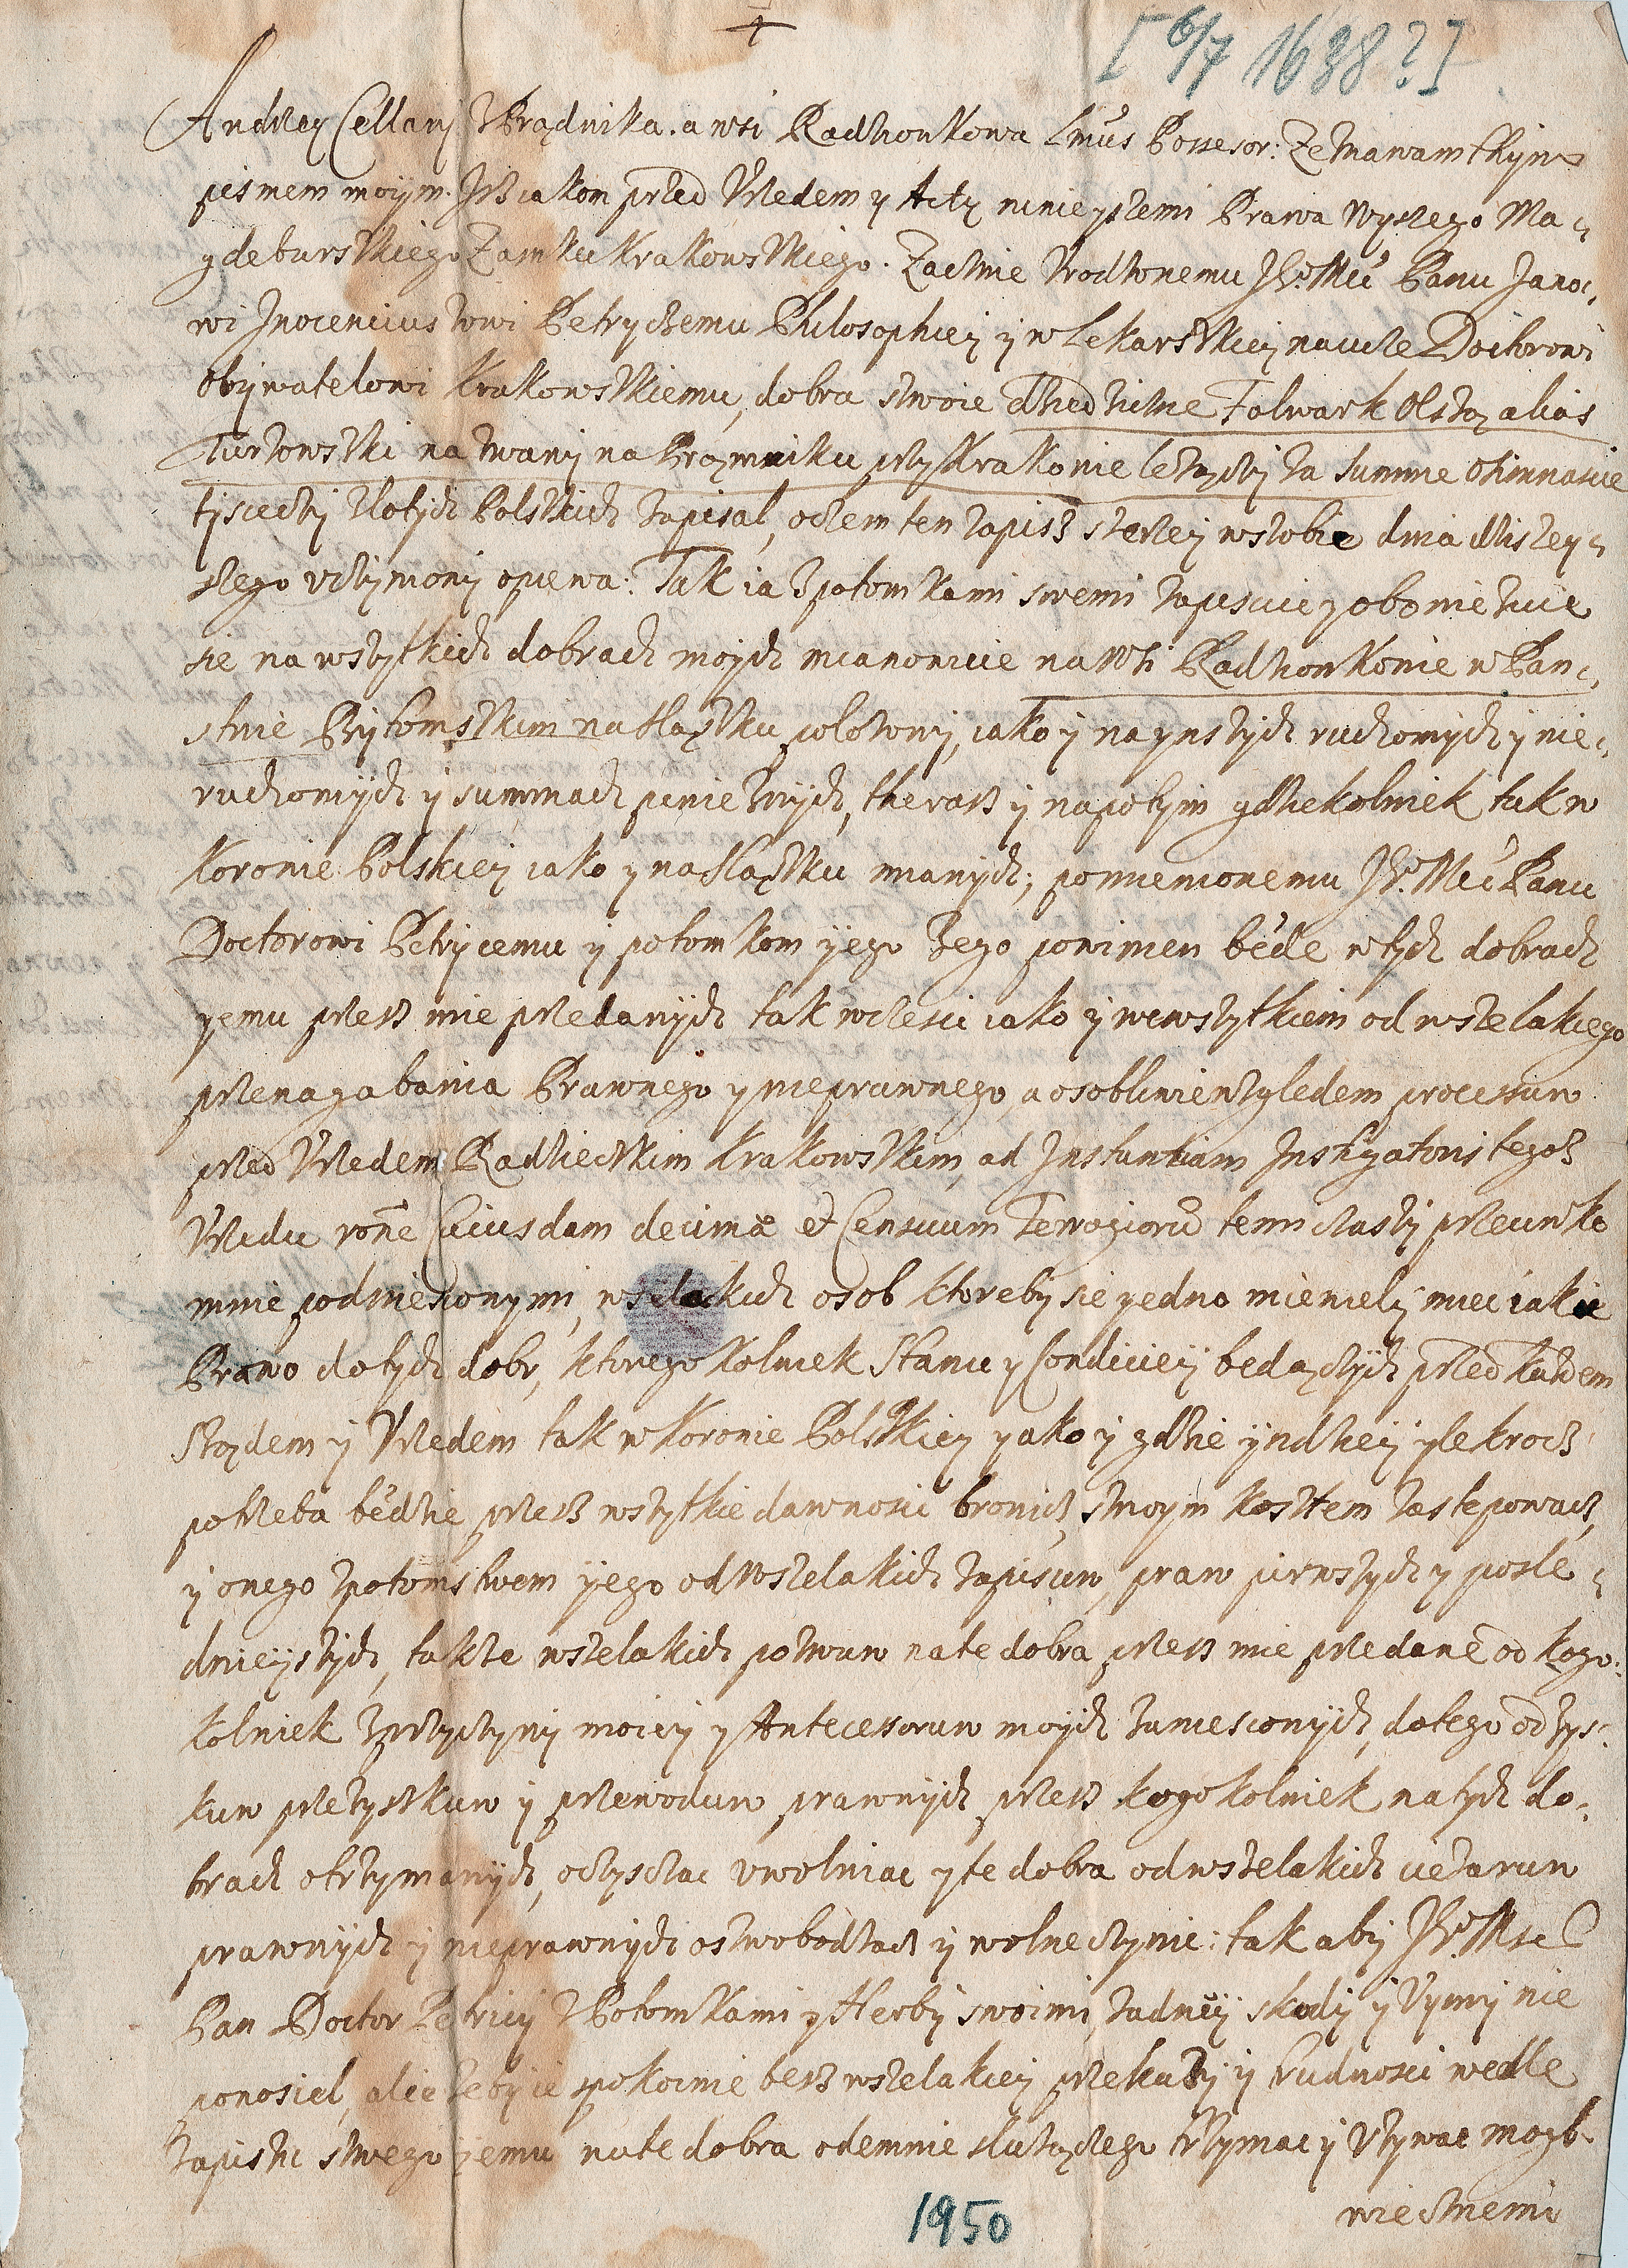 [6/7 1638?]
Andrzey Cellary z Prądnika. a wsi Radzionkowa Lmus Possesor: Zeznawam thym
pismem moiym. Jsz iakom przed Vrzedem y Acty ninieyszemi Prawa Wyszego Ma-
gdeburskiego Zamku Krakowskiego. Zacznie Vrodzonemu Je Mci Panu Jano-
wi Jnocenciuszowi Petryczemu Philosophiey y w Lekarskiey nauce Doctorowi
Obywatelowi Krakowskiemu, dobra swoie dziedziczne Folwark Olszy alias
Turzowski nazwany na Prąmniku przy Krakowie lezączy za summe Osimnascie
tysieczy Zlotych Polskich zapisal, oczem ten zapisz szerzey wsobie dnia dzisiey-
szego vczymony opiewa. Tak ia z potomkami swemi zapisuie y obowiezuie
sie na wszytkich dobrach moych mianowicie na Wsi Radzionkowie w Pan-
stwie Bytomskim na Slązku polozony, iako y na ynszych ruchomych y nie-
ruchomych y summach pienieznych, therasz y napotym gdziekolwiek tak w
Koronie Polskiey iako y na Slązku mianych; pomienionemu Je Mci Panu
Doctorowi Petrycemu y potomkom yego Jego powinien bede w tych dobrach
yemu przesz mie przedanych tak wczesci iako y wewszytkiem od wszelakiego
przenagabania Prawnego y nieprawnego a osobliwie wzgledem processuw
przed Vrzedem Radzieczkim Krakowskim, ad Jnstantiam Jnstigatoris tegosz
Vrzedu rone Cuiusdam decimæ et Censuum temi czaszy przeciwko
mnie podniesionymi, wszelackich osob ktoreby sie yedno mieniely miec iakie
Prawo do tych dobr, ktoregokolwiek Stanu y Condiciey bedączych przed kazdem
Sządem y Vrzedem tak w Koronie Polskiey yako y gdzie yndziey ylekrocz
potrzeba bedzie przesz wszytkie dawnosci bronicz, swoym kosztem zastepowacz,
y onego z potomstwem yego od Wszelakich zapisuw, praw pirwszych y posle-
dnieyszych, takze wszelakich pozwuw na te dobra przesz mie przedane od kogo-
kolwiek z przyczyny moiey y Antecessoruw moych zaniesconych, do tego od zys-
kuw przezyskuw y przewoduw prawnych przesz kogokolwiek na tych do-
brach otrzymanych, oczysczac vwolniac y te dobra od wszelakich ciezaruw
prawnych y nieprawnych oswobodzacz y wolne czynic: tak aby Je Msc
Pan Doctor Petricy z Potomkami y Herby swoimi, zadney skody y Vymy nie
ponosiel, alie zeby ie spokoinie besz wszelakiey przekazy y trudnosci wedle
zapisu swego jemu na te dobra odemnie sluzączego trzymac y Vzywac mogl.
wiecznemi
1950